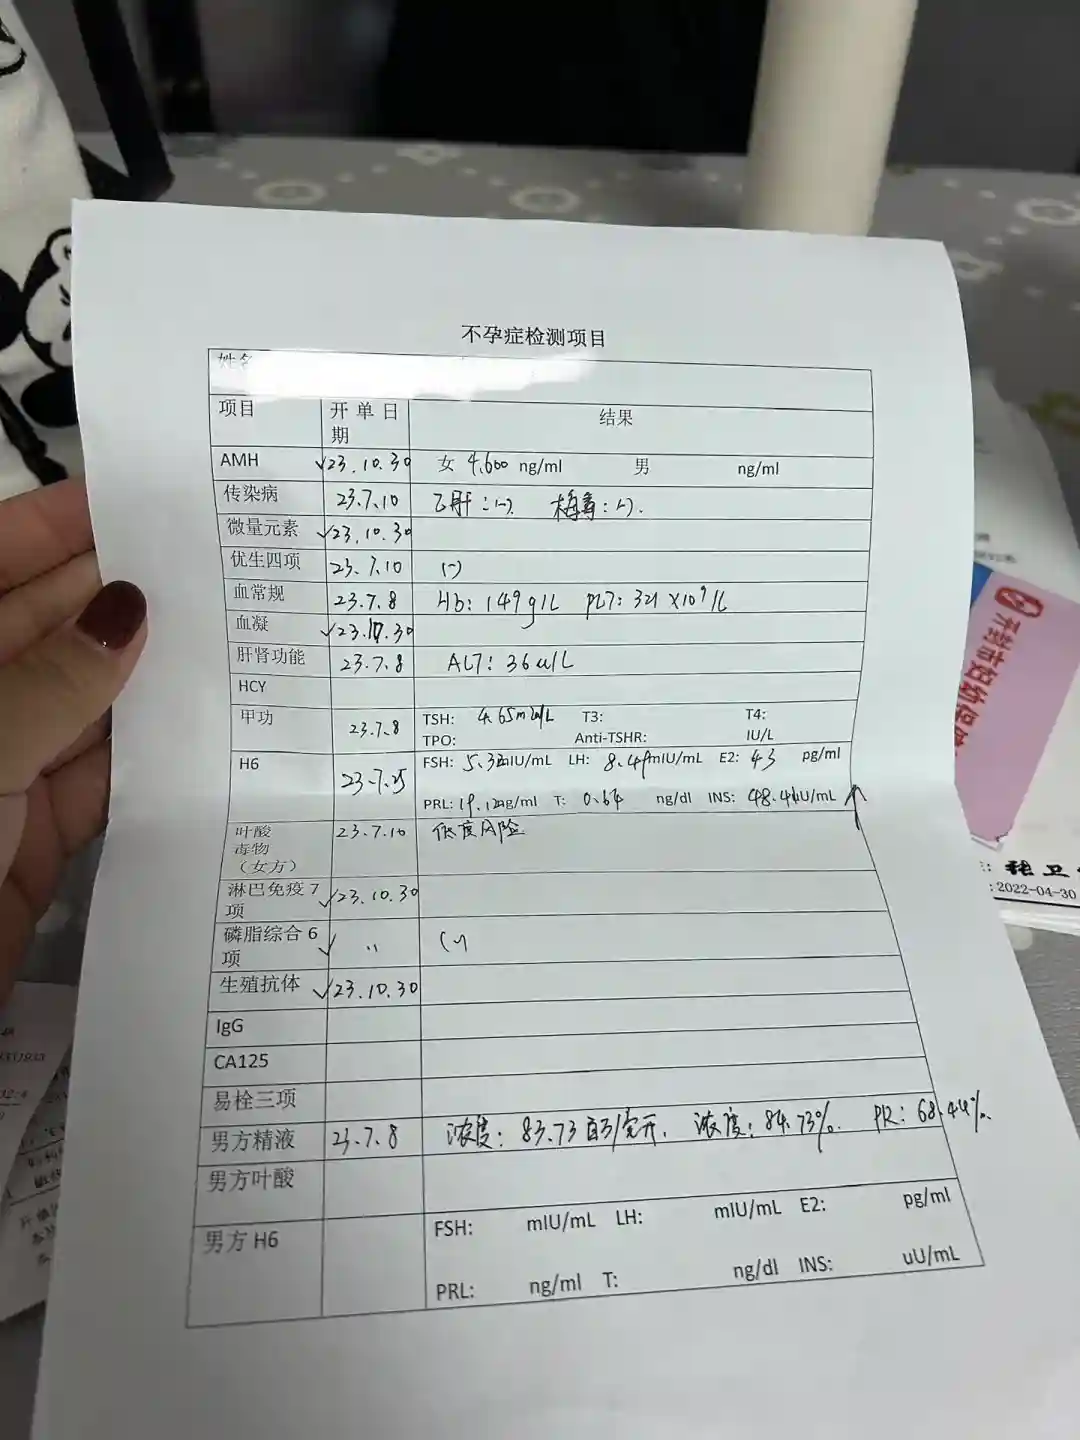 不孕症检测项目
姓名
项目 开单日期 结果
AMH ✓23.10.30 女 4.600 ng/ml 男 ng/ml
传染病 23.7.10 乙肝:(-) 梅毒:(-).
微量元素 ✓23.10.30
优生四项 23.7.10 (-)
血常规 23.7.8 Hb: 149g/L PLT: 321×10⁹/L
血凝 ✓23.10.30
肝肾功能 23.7.8 ALT: 36u/L
HCY
甲功 23.7.8 TSH: 4.65mIu/L T3: T4:
TPO: Anti-TSHR: IU/L
H6 23.7.25 FSH: 5.32mIU/mL LH: 8.49mIU/mL E2: 43 pg/ml
PRL: 19.12ng/ml T: 0.64 ng/dl INS: 48.41uU/mL ↑
叶酸 23.7.10 低度风险
毒物
（女方）
淋巴免疫7项 ✓23.10.30
磷脂综合6项 ✓ 〃 (-)
生殖抗体 ✓23.10.30
IgG
CA125
易栓三项
男方精液 23.7.8 浓度: 83.73百万/毫升. 浓度: 84.73%. PR: 68.44%.
男方叶酸
男方H6 FSH: mIU/mL LH: mIU/mL E2: pg/ml
PRL: ng/ml T: ng/dl INS: uU/mL
开封市妇幼保健
张卫
:2022-04-30